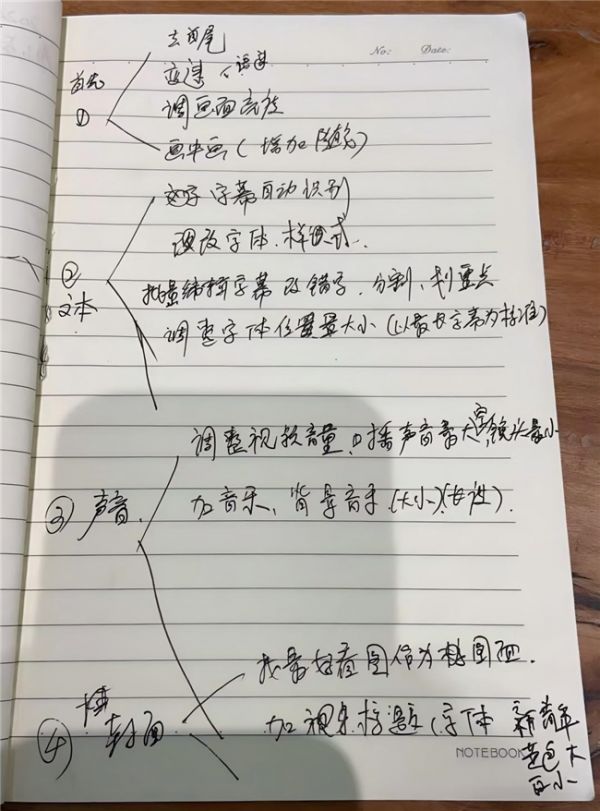 No: Date:
去首尾
首先 变速 语速
① 调画面亮度
画中画(增加
文字字幕自动识别
字体.样式.
② 批量编辑字幕改错字.分割、划重点
文本 调整字体位置 大小(以最长字幕为标准)
调整视频音量.口播声音最大,空镜头最小
③ 声音. 加音乐、背景音乐(大小)(长短).
找最好看图作为封面.
④ 封面 加视频标题(字体 新青年
黄色大
白小
NOTEBOOK